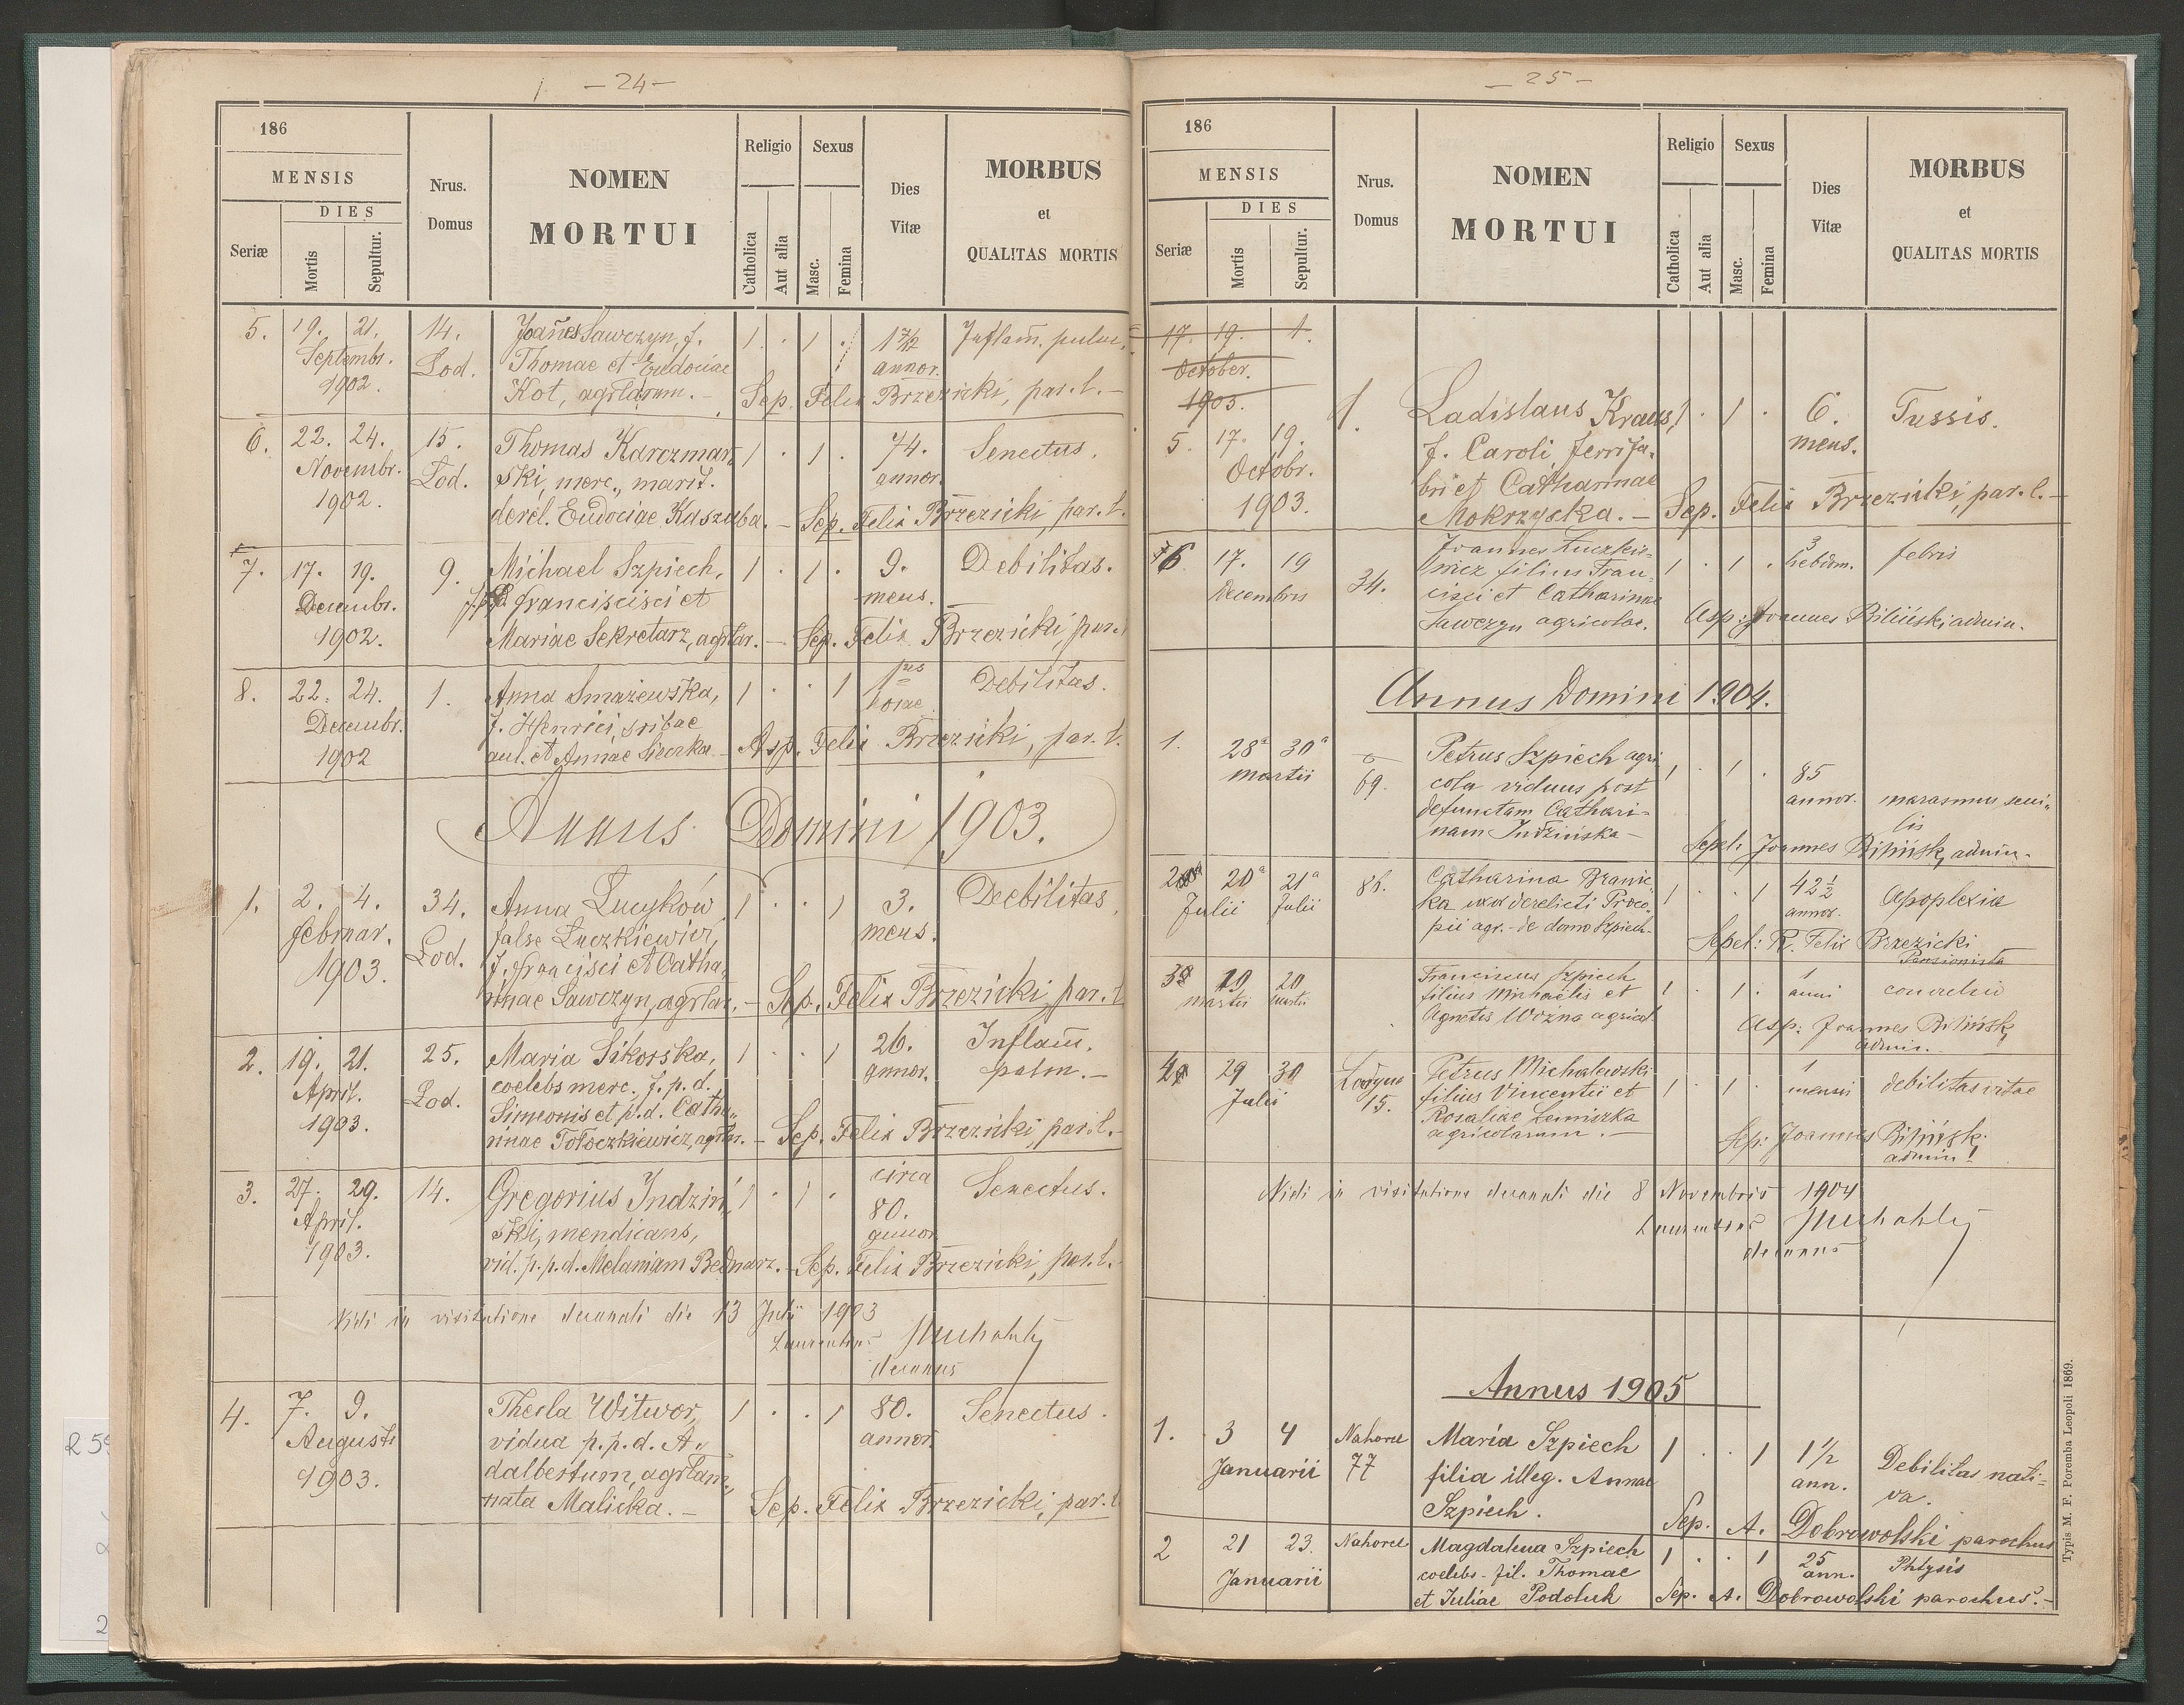 — 24 —
186
MENSIS
DIES
Seriæ
Mortis
Sepultur.
Nrus.
Domus
NOMEN
MORTUI
Religio
Catholica
Aut alia
Sexus
Masc.
Femina
Dies
Vitæ
MORBUS
et
QUALITAS MORTIS
5. 19. 21. 14. Joañes Sawczyn, f. 1 . 1 . 1 7/12 Inflam̃. pulm.
Septembr. Lod. Thomae et Eudociae annor.
1902. Kot, agrlarum. — Sep. Felix Brzezicki, par. l. —
6. 22. 24. 15. Thomas Karczmar̃ 1 . 1 . 74. Senectus.
Novembr. Lod. ski, merc., marit. annor.
1902. derel. Eudociae Kaszuba. — Sep. Felix Brzezicki, par. l.
7. 17. 19. 9. Michael Szpiech, 1 . 1 . 9. Debilitas.
Decembr. francisisci et mens.
1902. Mariae Sekretarz, agrlar. — Sep. Felix Brzezicki, par.
8. 22. 24. 1. Anna Smażewska, 1 . . 1 Debilitas.
Decembr. f. Henrici, sribae horae
1902 aul. et Annae — Asp. Felix Brzezicki, par. l.
Annus Domini 1903.
1. 2. 4. 34. Anna Lucyków 1 . . 1 3. Debilitas
Februar. Lod. false Łuczkiewicz, mens.
1903. f. francisci et Catha-
rinae Sawczyn, agrlar. — Sep. Felix Brzezicki, par. l
2. 19. 21. 25. Maria Sikorska, 1 . . 1 26. Inflam̃.
April. Lod. coelebs merc. f. p. d. annor. pulm. —
1903. Simeonis et p. d. Catha-
rinae Tołoczkiewicz, agrlar. — Sep. Felix Brzezicki, par. l. —
3. 27. 29. 14. Gregorius Indziń 1 . 1 . circa Senectus.
April. ski, mendicans, 80.
1903. annor
vid. p. p. d. Melaniam Bednarz. — Sep. Felix Brzezicki, par. l.
Vidi in visitatione decanali die 13 Julii 1903
Laurentius
decanus
4. 7. 9. Thecla Witwer, 1 . . 1 80. Senectus.
Augusti vidua p. p. d. A- annor.
1903. dalbertum, agrlam,
nata Malicka. — Sep. Felix Brzezicki, par. l
— 25 —
186
MENSIS
DIES
Seriæ
Mortis
Sepultur.
Nrus.
Domus
NOMEN
MORTUI
Religio
Catholica
Aut alia
Sexus
Masc.
Femina
Dies
Vitæ
MORBUS
et
QUALITAS MORTIS
17. 19. 1.
October.
1903.
1. Ladislaus Kraus, 1 . 1 . 6. Tussis.
5. 17. 19. f. Caroli, ferrifa- mens.
Octobr. bri et Catharinae
1903. Mokrzycka. — Sep. Felix Brzezicki, par. l. —
6. 17. 19 34. Joannes Łuczkie- 1 . 1 . 3 febris
Decembris wicz filius Fran- hebdom.
cisci et Catharinae
Sawczyn agricolae. Asp: Joannes Biliński admin.
Annus Domini 1904.
1. 28ᵃ 30ᵃ 69. Petrus Szpiech agri- 1 . 1 . 85
martii cola viduus post annor. marasmus seni-
defunctam Cathari- lis
nam Indzińska — Sepel: Joannes Bilińsk, admin.
2 20ᵃ 21ᵃ 86. Catharina Branic- 1 . . 1 42 ½ Apoplexia
Julii Julii ka uxor derelicti Proco- annor.
pii agr. - de domo Szpiech. Sepel: R. Felix Brzezicki
Pensionista
3 19 20 Franciscus Szpiech 1 . 1 . 1
martii martii filius Michaelis et anni
Agnetis Woźna agricol. Asp: Joannes Bilińsk,
admin.
4 29 30 Łodyna Petrus Michalewski 1 . 1 . 1 debilitas vitae
Julii 15. filius Vincentii et mensis
Rosaliae Lemiszka
agricolarum. — Sep: Joannes Bilińsk
admin!
Vidi in visitatione decanali die 8 Novembris 1904
Laurentius
decanus
Annus 1905
1. 3 4 Nahorce Maria Szpiech 1 . . 1 1½ Debilitas nati-
Januarii 77 filia illeg. Annae ann. va.
Szpiech. Sep. A. Dobrowolski parochus
2 21 23. Nahorce Magdalena Szpiech 1 . . 1 25 Phtysis
Januarii coelebs - fil. Thomae ann.
et Juliae Podoluk Sep. A. Dobrowolski parochus. —
Typis M. F. Poremba Leopoli 1869.